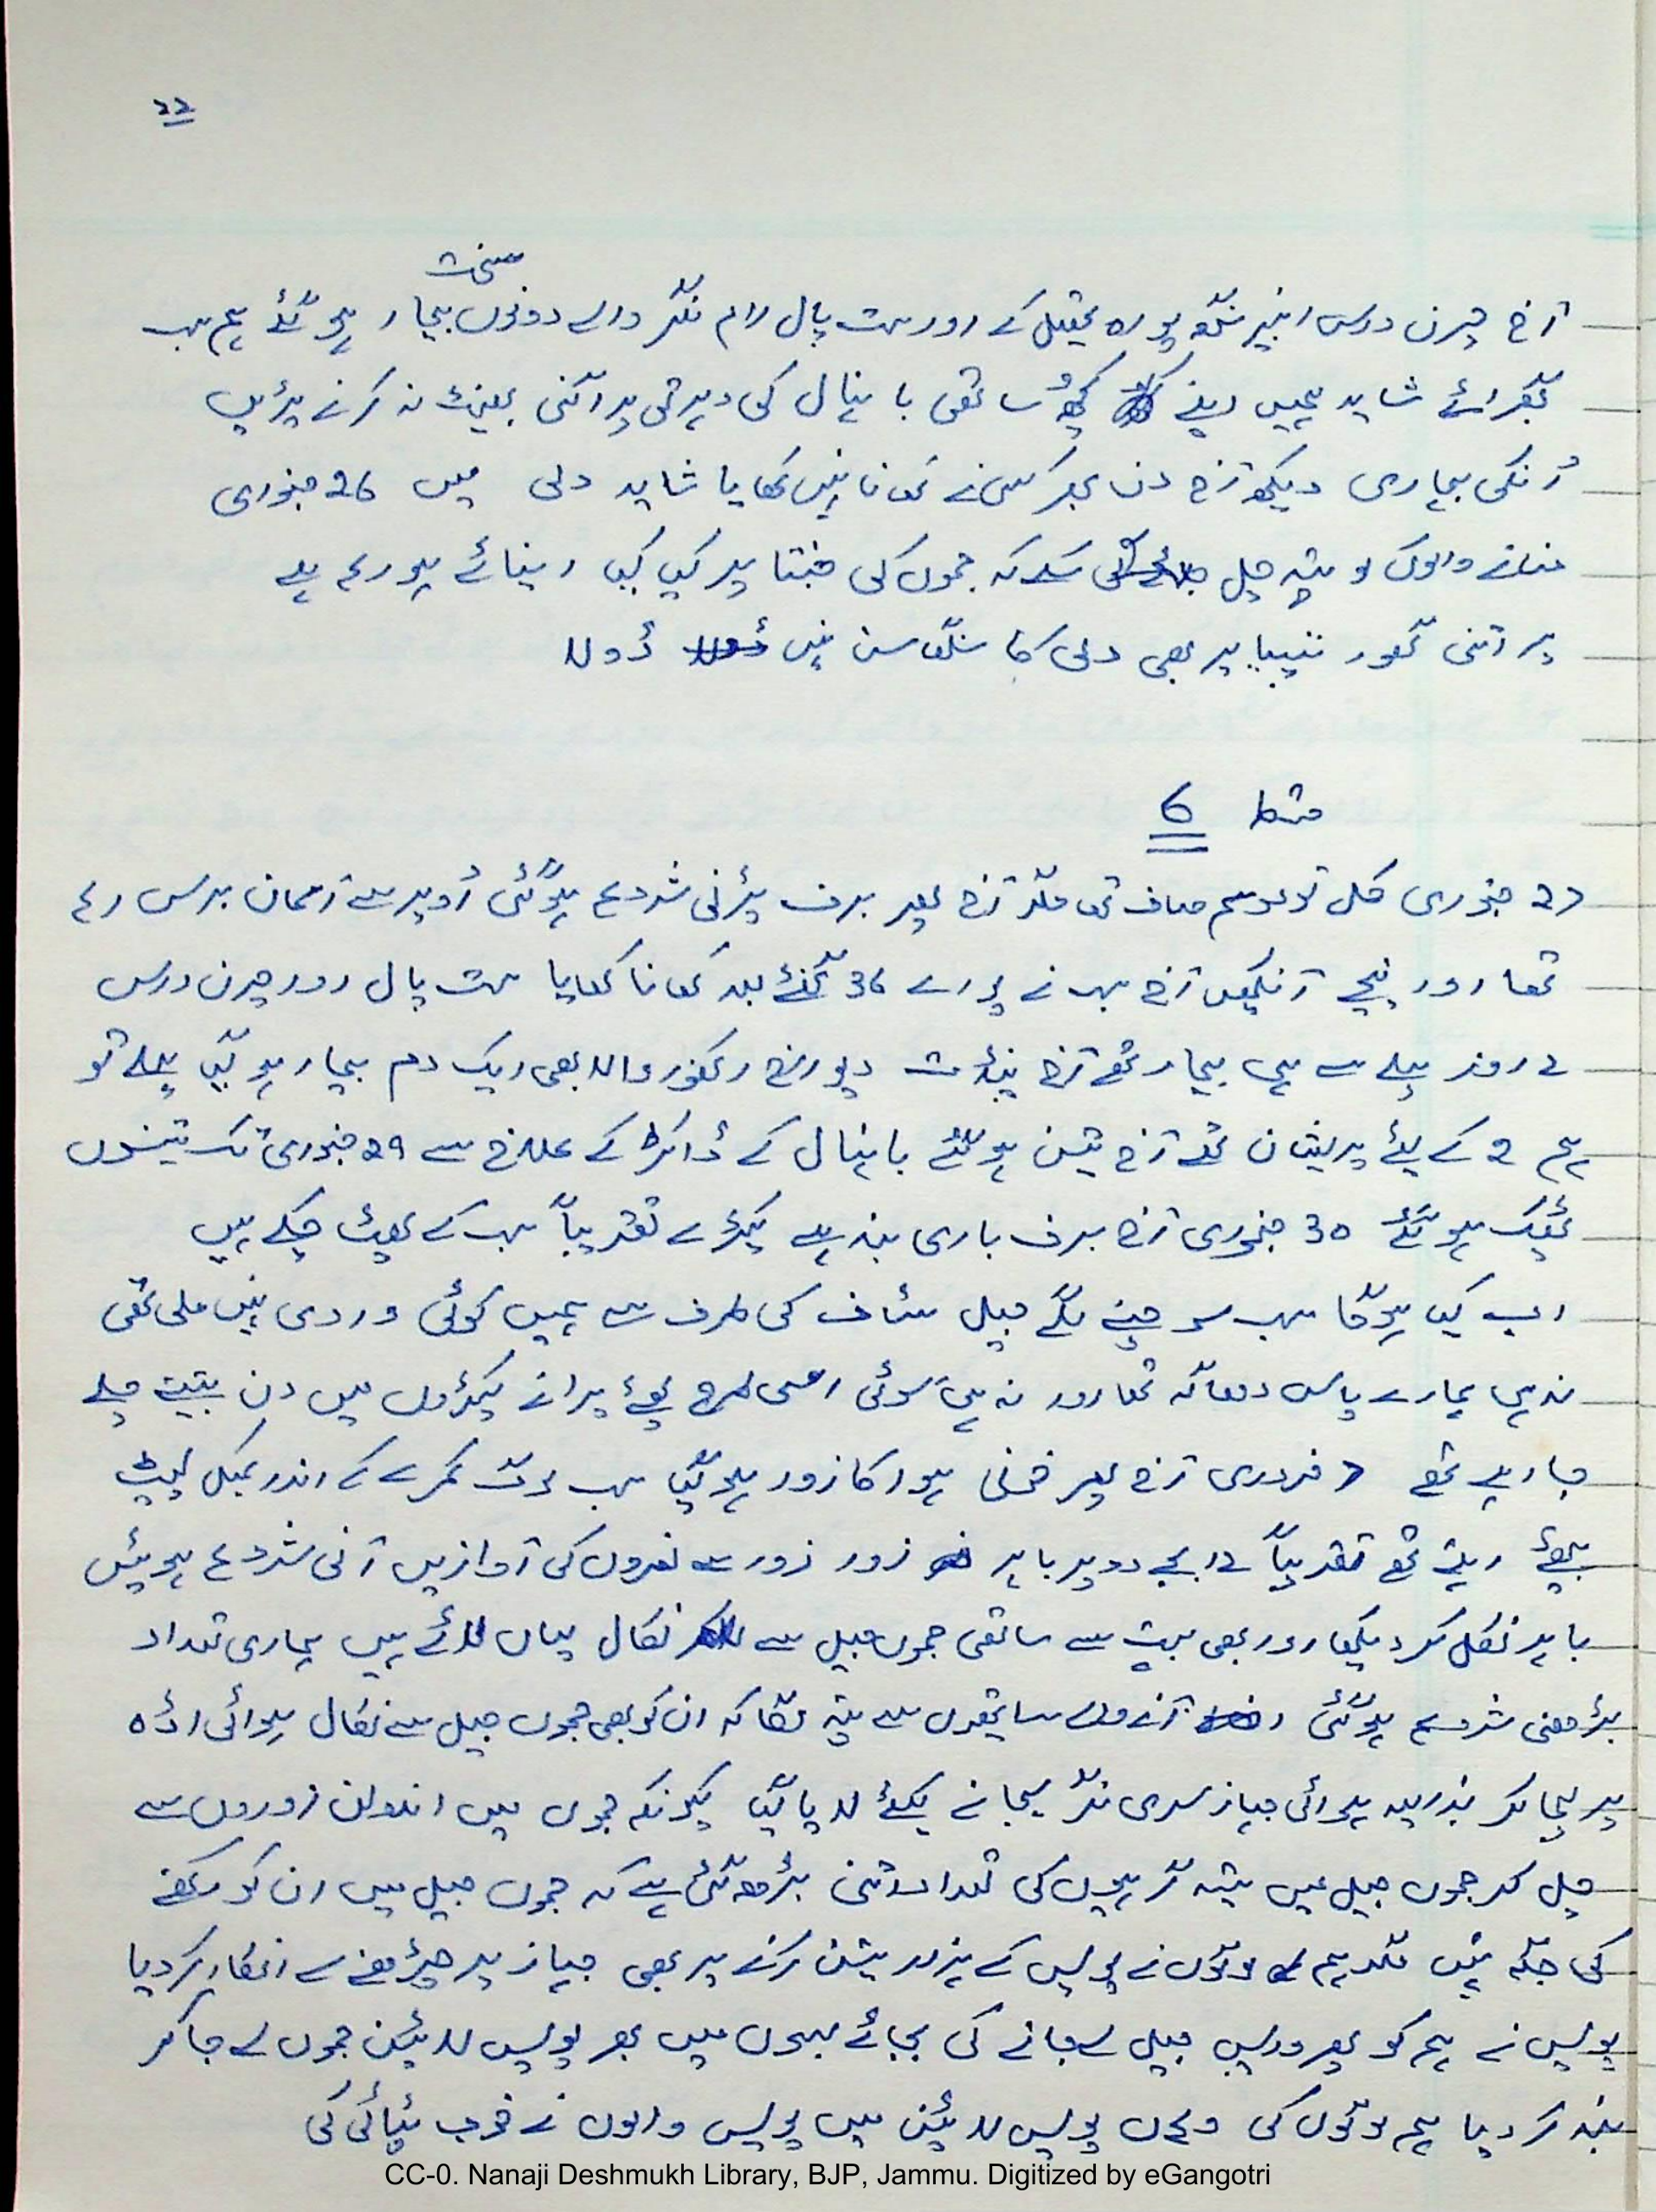 ۲۲
سخت
آج چرن درس انبیر سنگھ پورہ تحصیل کے اور ست پال رام نگر والے دونوں بیمار ہو گئے ہم سب
گھبرائے شاید ہمیں اپنے کچھ ساتھی بانہال کی دہرتی پر اگنی بھینٹ نہ کرنے پڑیں
اُنکی بیماری دیکھ آج دن بھر کسی نے کھانا نہیں کھایا شاید دلی میں 26 جنوری
منانے والوں کو پتہ چل سکے کہ جموں کی جنتا پر کیا کیا انیائے ہو رہے ہے
پر اتنی گھور تپسیا پر بھی دلی کا سنگھاسن نہیں ڈولا
قسط 6
27 جنوری کل تو موسم صاف تھا مگر آج پھر برف پڑنی شروع ہو گئی اُوپر سے آسمان برس رہے
تھا اور نیچے آنکھیں آج سب نے پورے 36 گھنٹے بعد کھانا کھایا ست پال اور چرن درس
2 روز پہلے سے ہی بیمار تھے آج پنڈت دیوراج اکھنور والا بھی ایک دم بیمار ہو گیا پہلے تو
ہم 2 کے لیئے پریشان تھے آج تین ہو گئے بانہال کے ڈاکڑ کے علاج سے 29 جنوری تک تینوں
ٹھیک ہو گئے 30 جنوری آج برف باری بند ہے کپڑے تقریباً سب کے پھٹ چکے ہیں
اب کیا ہو گا سب سوچنے لگے جیل سٹاف کی طرف سے ہمیں کوئی وردی نہیں ملی تھی
نہ ہی ہمارے پاس دھاگہ تھا اور نہ ہی سوئی اسی طرح پھٹے پرانے کپڑوں میں دن بیتتے چلے
جا رہے تھے 7 فروری آج پھر خونی ہوا کا زور ہو گیا سب لوگ کمرے کے اندر کمبل لپیٹ
ہوئے لیٹے تھے تقریباً 12 بجے دوپہر باہر زور زور سے نعروں کی آوازیں آنی شروع ہوئیں
باہر نکل کر دیکھا اور بھی بہت سے ساتھی جموں جیل سے نکال یہاں لائے ہیں ہماری تعداد
بڑھنی شروع ہو گئی آنے والے ساتھیوں سے پتہ لگا کہ ان کو بھی جموں جیل سے نکال ہوائی اڈہ
پر لیجا کر بذریعہ ہوائی جہاز سری نگر لیجانے کیلئے لایا گیا کیونکہ جموں میں اندولن زوروں سے
چل کر جموں جیل میں ستیہ گرہیوں کی تعداد اتنی بڑھ گئی ہے کہ جموں جیل میں ان کو رکھنے
کی جگہ نہیں مگر ہم لوگوں نے پولیس کے ہزار یتن کرنے پر بھی جہاز پر چڑھنے سے انکار کر دیا
پولیس نے ہم کو پھر واپس جیل لے جانے کی بجائے بسوں میں بھر پولیس لائین جموں لے جا کر
بند کر دیا ہم لوگوں کی وہاں پولیس لائین میں پولیس والوں نے خوب پٹائی کی
CC-0. Nanaji Deshmukh Library, BJP, Jammu. Digitized by eGangotri